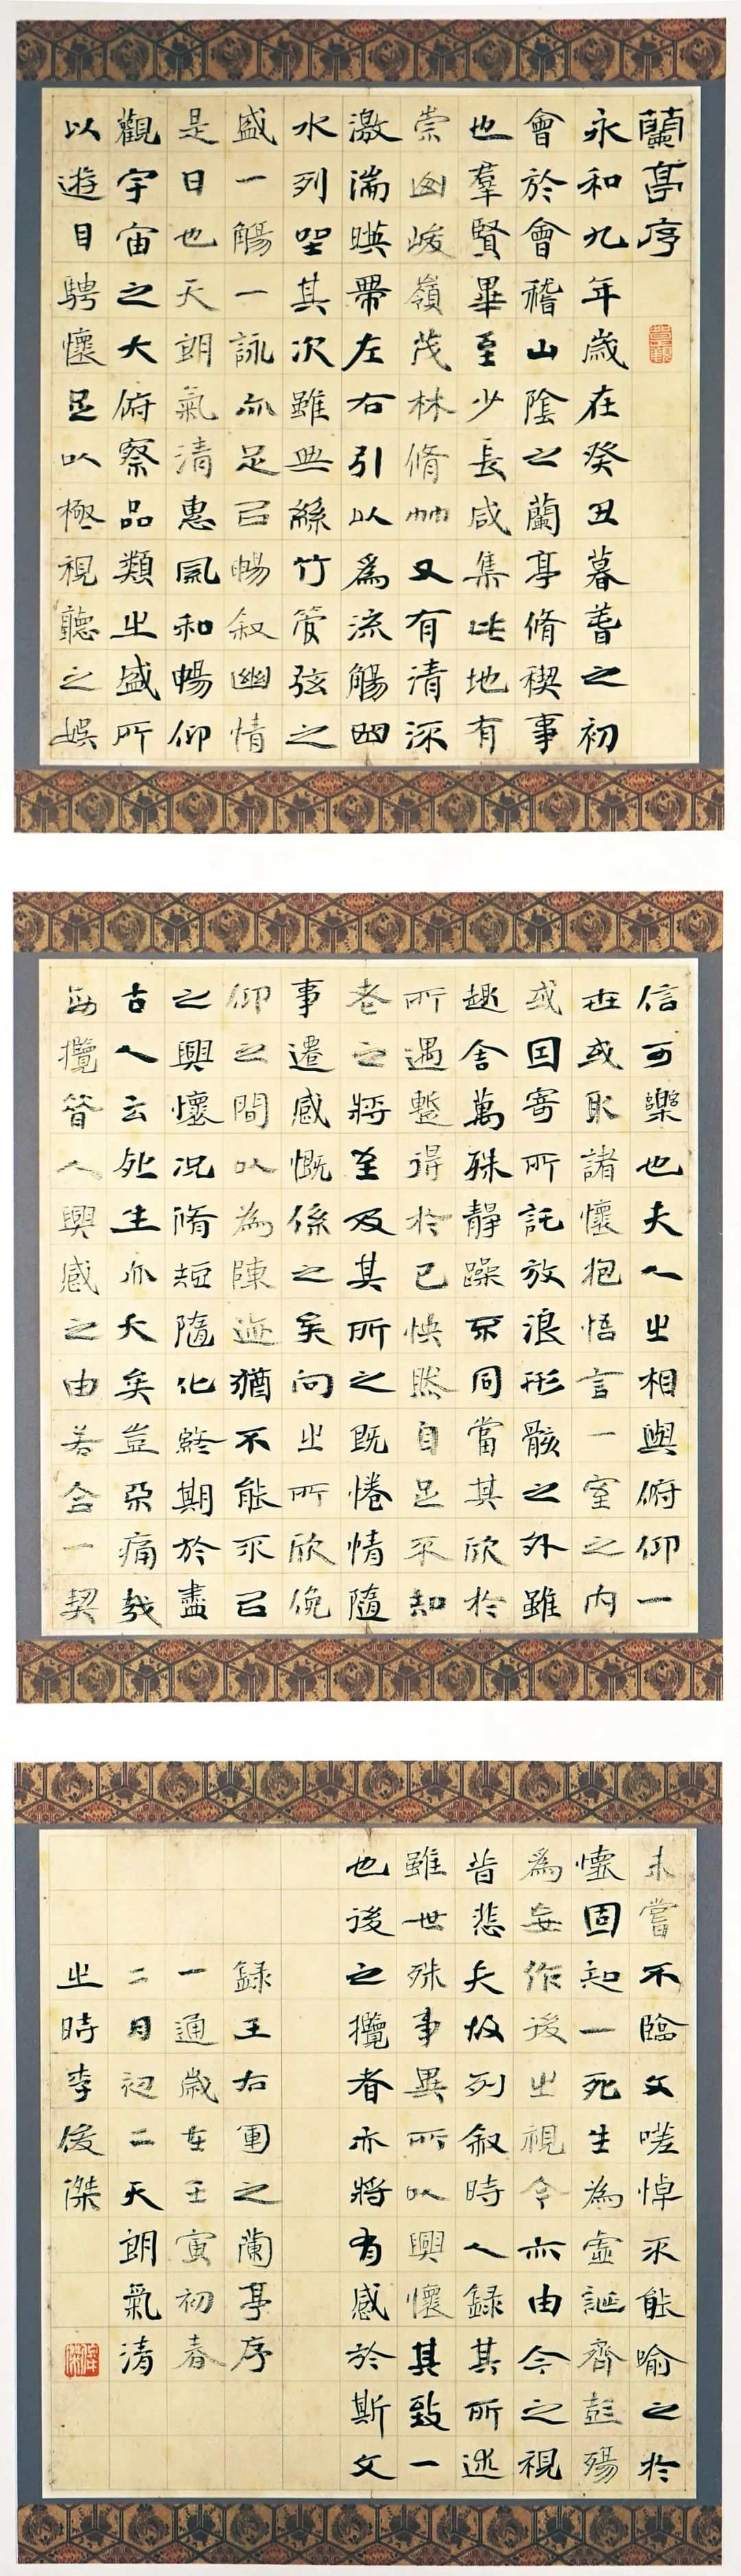 蘭亭序
永和九年歲在癸丑暮春之初
會於會稽山陰之蘭亭脩禊事
也羣賢畢至少長咸集此地有
崇山峻嶺茂林脩竹又有清流
激湍暎帶左右引以為流觴曲
水列坐其次雖無絲竹管弦之
盛一觴一詠亦足已暢叙幽情
是日也天朗氣清惠風和暢仰
觀宇宙之大俯察品類之盛所
以遊目騁懷足以極視聽之娛
信可樂也夫人之相與俯仰一
世或取諸懷抱悟言一室之內
或因寄所託放浪形骸之外雖
趣舍萬殊靜躁不同當其欣於
所遇暫得於己怏然自足不知
老之將至及其所之既惓情隨
事遷感慨係之矣向之所欣俛
仰之間以為陳迹猶不能不已
之興懷況脩短隨化終期於盡
古人云死生亦大矣豈不痛哉
每攬昔人興感之由若合一契
未嘗不臨文嗟悼不能喻之於
懷固知一死生為虛誕齊彭殤
為妄作後之視今亦由今之視
昔悲夫故列叙時人錄其所述
雖世殊事異所以興懷其致一
也後之攬者亦將有感於斯文
録王右軍之蘭亭序
一通歲在壬寅初春
二月初二天朗氣清
之時李俊傑